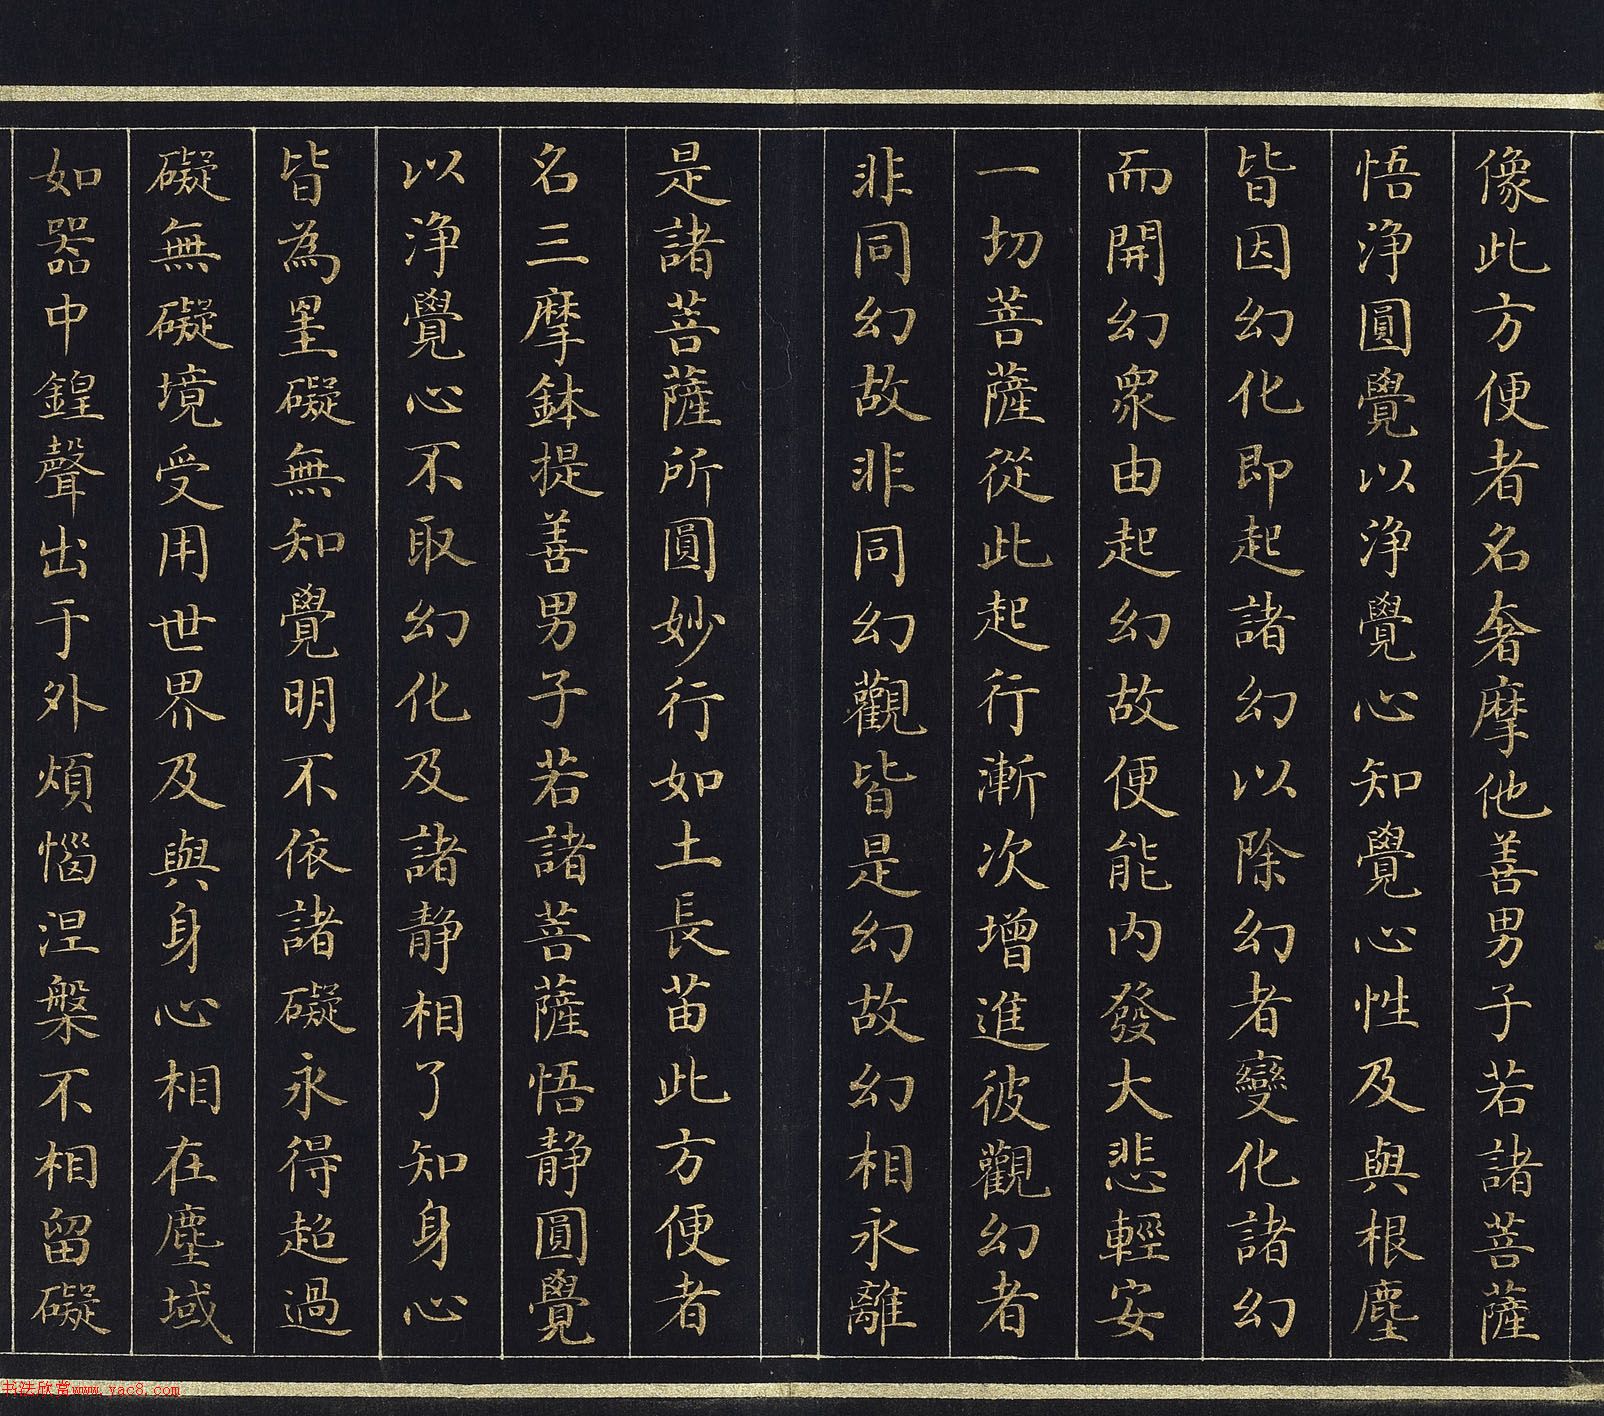 像此方便者名奢摩他善男子若諸菩薩
悟淨圓覺以淨覺心知覺心性及與根塵
皆因幻化即起諸幻以除幻者變化諸幻
而開幻衆由起幻故便能内發大悲輕安
一切菩薩從此起行漸次增進彼觀幻者
非同幻故非同幻觀皆是幻故幻相永離
是諸菩薩所圓妙行如土長苗此方便者
名三摩鉢提善男子若諸菩薩悟静圓覺
以淨覺心不取幻化及諸静相了知身心
皆為罣礙無知覺明不依諸礙永得超過
礙無礙境受用世界及與身心相在塵域
如器中鍠聲出于外煩惱涅槃不相留礙
书法欣赏www.yac8.com